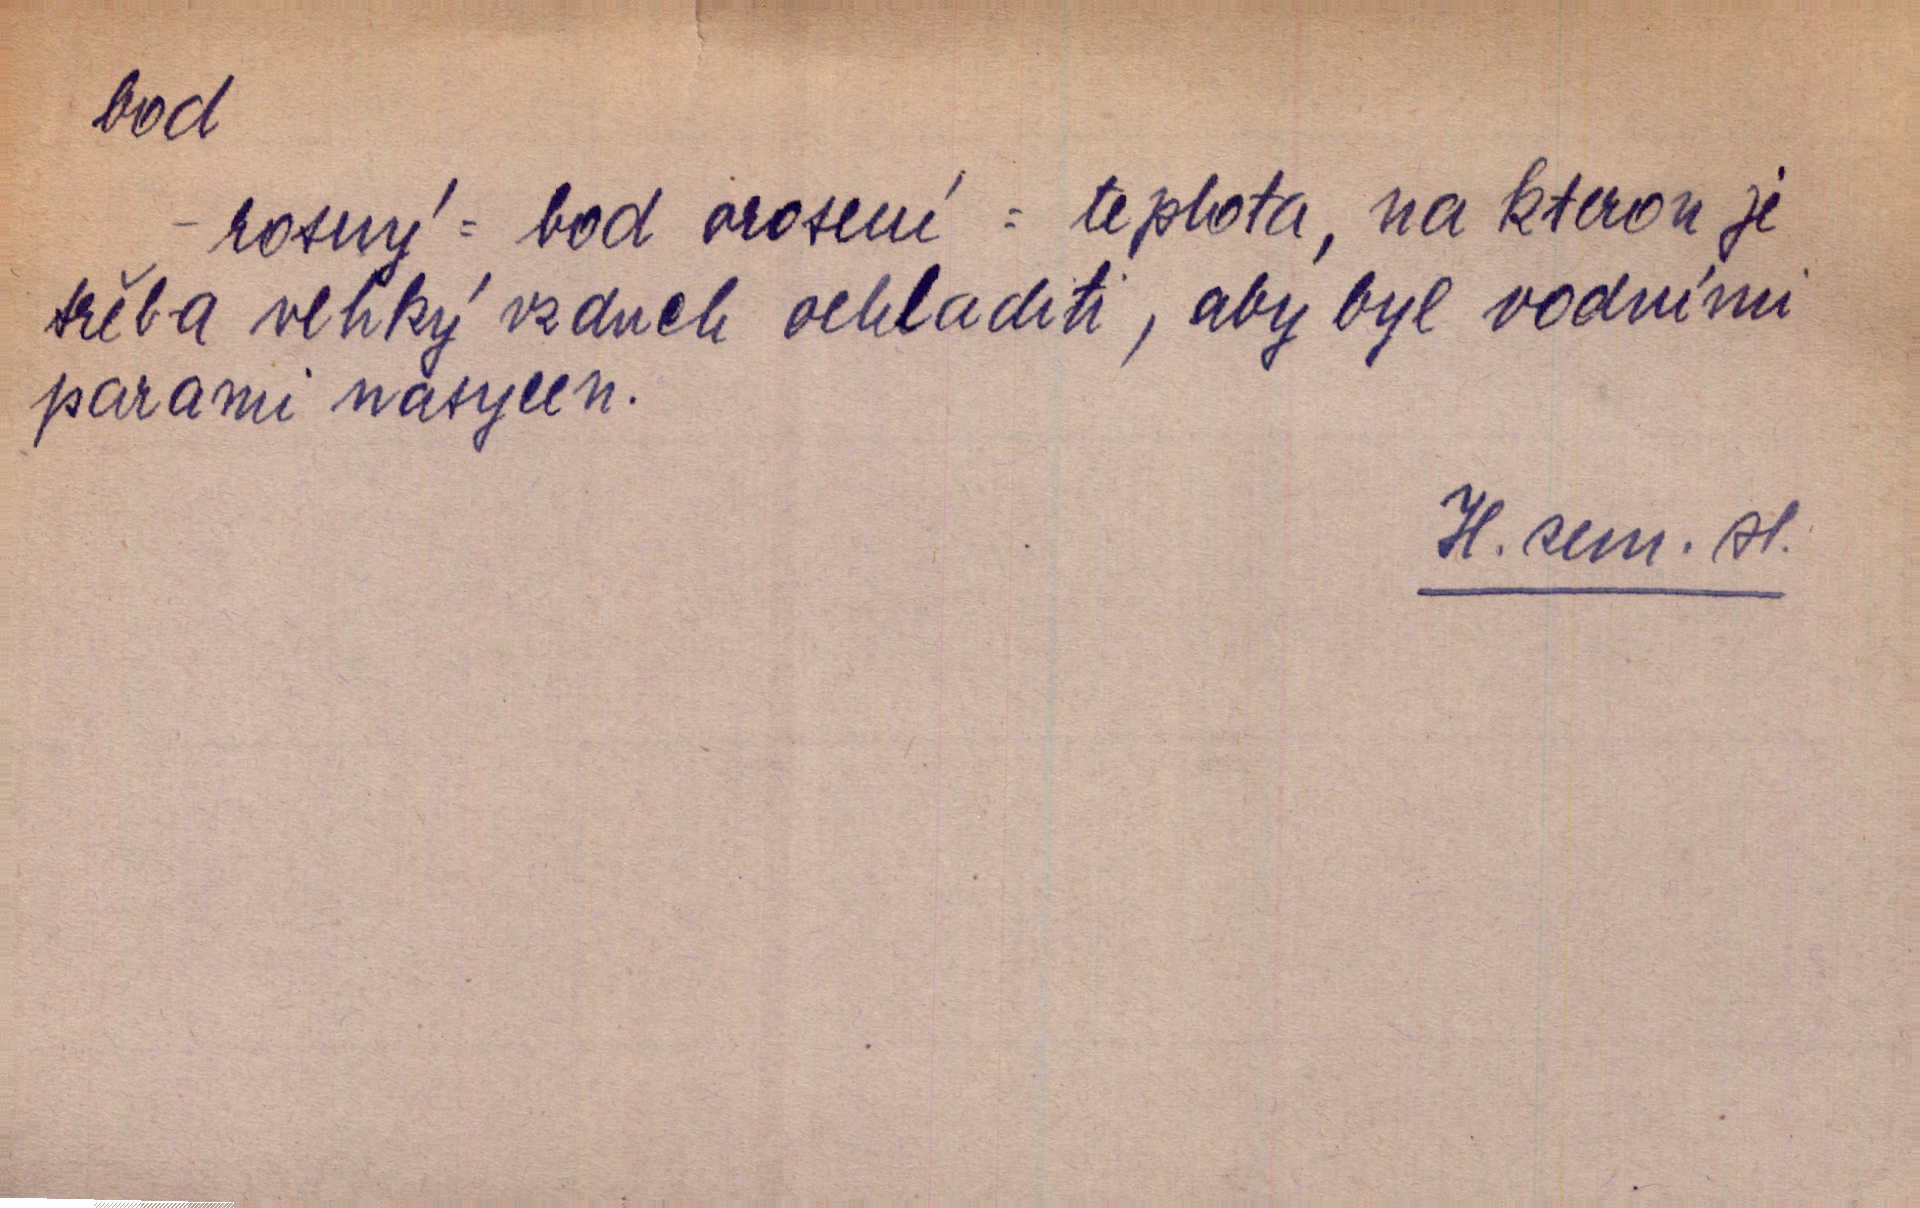 bod
- rosný = bod orosení = teplota, na kterou je
třeba vlhký vzduch ochladiti, aby byl vodními
parami nasycen.
H. zem. sl.